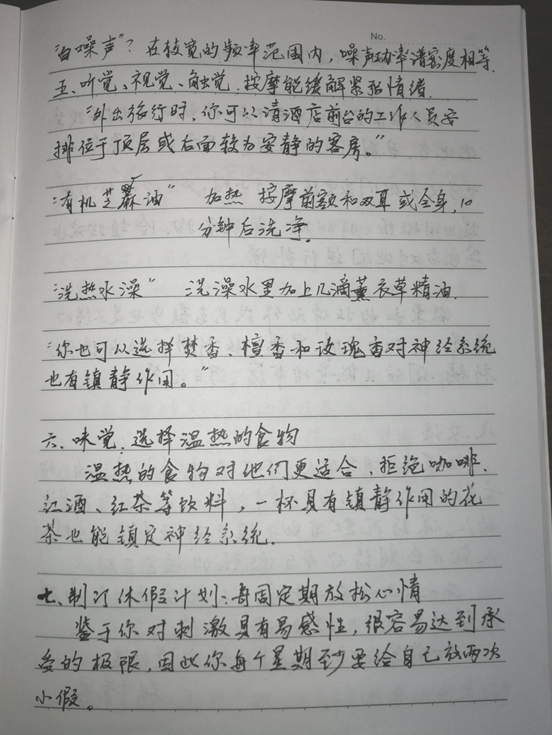 No.
“白噪声”？在较宽的频率范围内，噪声功率谱密度相等.
五、听觉、视觉、触觉，按摩能缓解紧张情绪.
“外出旅行时，你可以请酒店前台的工作人员安
排位于顶层或右面较为安静的客房。”
“有机芝麻油” 加热 按摩前额和双耳或全身，10
分钟后洗净.
“洗热水澡” 洗澡水里加上几滴薰衣草精油.
“你也可以选择焚香、檀香和玫瑰香对神经系统
也有镇静作用。”
六、味觉：选择温热的食物
温热的食物对他们更适合，拒绝咖啡.
红酒、红茶等饮料，一杯具有镇静作用的花
茶也能镇定神经系统.
七、制订休假计划：每周定期放松心情
鉴于你对刺激具有易感性，很容易达到承
受的极限，因此你每个星期至少要给自己放两次
小假。